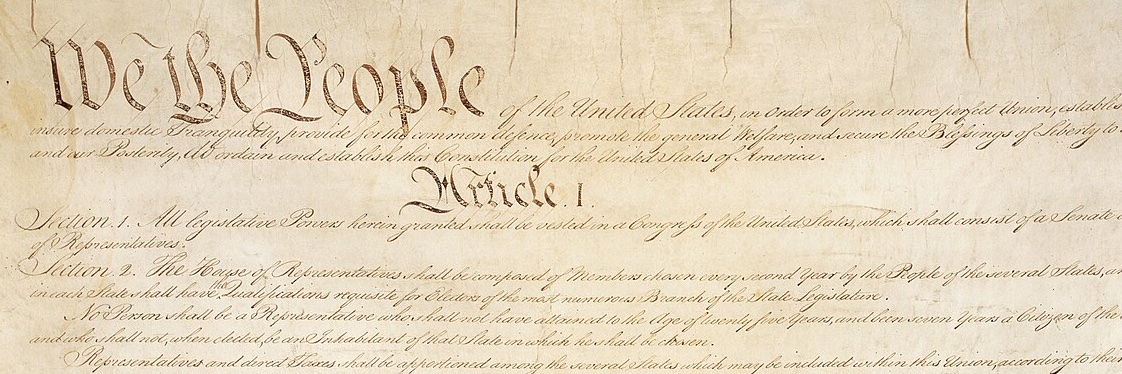 We the People of the United States, in Order to form a more perfect Union, establis
insure domestic Tranquility, provide for the common defence, promote the general Welfare, and secure the Blessings of Liberty to
and our Posterity, do ordain and establish this Constitution for the United States of America.
Article. I.
Section. 1. All legislative Powers herein granted shall be vested in a Congress of the United States, which shall consist of a Senate
of Representatives.
Section. 2. The House of Representatives shall be composed of Members chosen every second Year by the People of the several States, an
in each State shall have the Qualifications requisite for Electors of the most numerous Branch of the State Legislature.
No Person shall be a Representative who shall not have attained to the Age of twenty five Years, and been seven Years a Citizen of the
and who shall not, when elected, be an Inhabitant of that State in which he shall be chosen.
Representatives and direct Taxes shall be apportioned among the several States which may be included within this Union, according to their